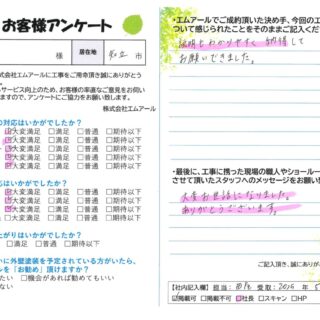 お客様アンケート
様 居在地 知立 市
株式会社エムアールに工事をご用命頂き誠にありがとう
サービス向上のため、お客様の率直なご意見をお伺い
ますので、アンケートにご協力をお願い致します。
株式会社エムアール
の対応はいかがでしたか？
大変満足 □満足 □普通 □期待以下
大変満足 □満足 □普通 □期待以下
大変満足 □満足 □普通 □期待以下
応はいかがでしたか？
大変満足 □満足 □普通 □期待以下
大変満足 □満足 □普通 □期待以下
大変満足 □満足 □普通 □期待以下
たがりはいかがでしたか？
□満足 □普通 □期待以下
いに外壁塗装を予定されている方がいたら、
ルを「お勧め」頂けますか？
たい □機会があれば勧めてもいい
ない
・エムアールでご成約頂いた決め手、今回の工
ついて感じられたことをそのままご記入くだ
説明もわかりやすく 納得して
お願いできました。
・最後に、工事に携った現場の職人やショールー
させて頂いたスタッフへのメッセージをお願い
大変お世話になりました。
ありがとうございます。
ご記入頂き、誠にありがと
【社内記入欄】担当： 受取：2015 年 5
掲載可 □掲載不可 社長 □スキャン □HP